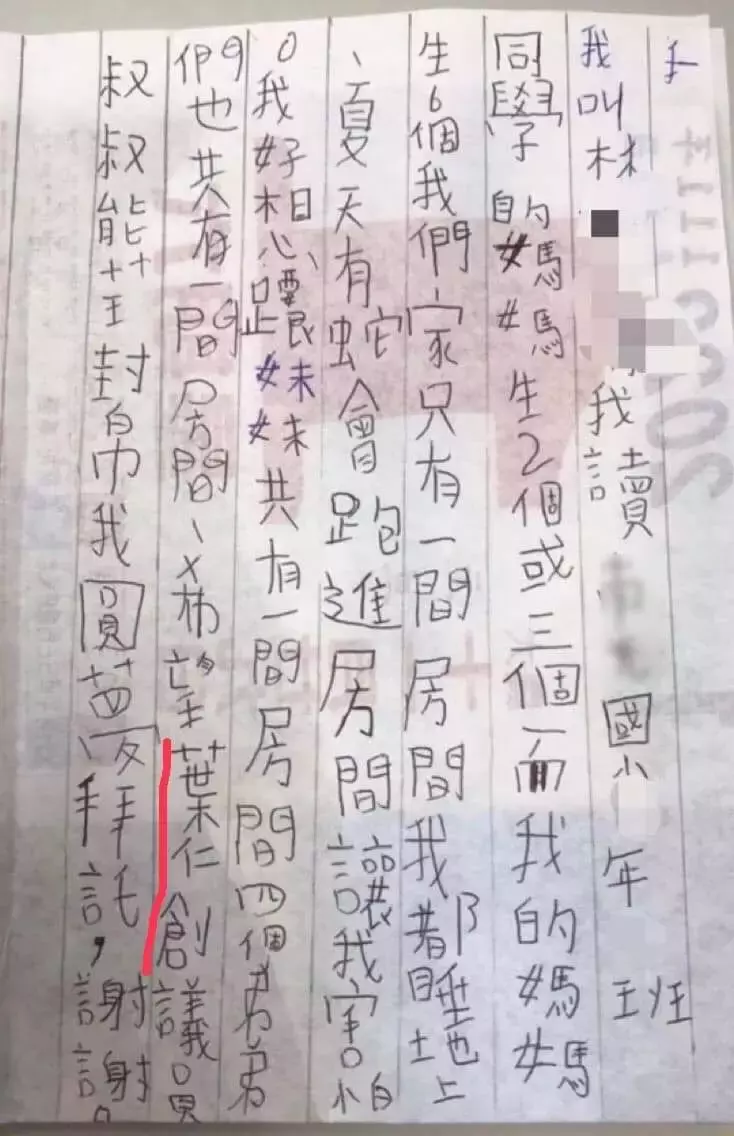 我叫林我讀國小年班
同學的媽媽生2個或三個而我的媽媽
生6個我們家只有一間房間我都睡地上
、夏天有蛇會跑進房間讓我害怕
。我好想跟妹妹共有一間房間四個弟弟
們也共有一間房間、希望葉仁創議員
叔叔能幫我圓夢拜託，謝謝。